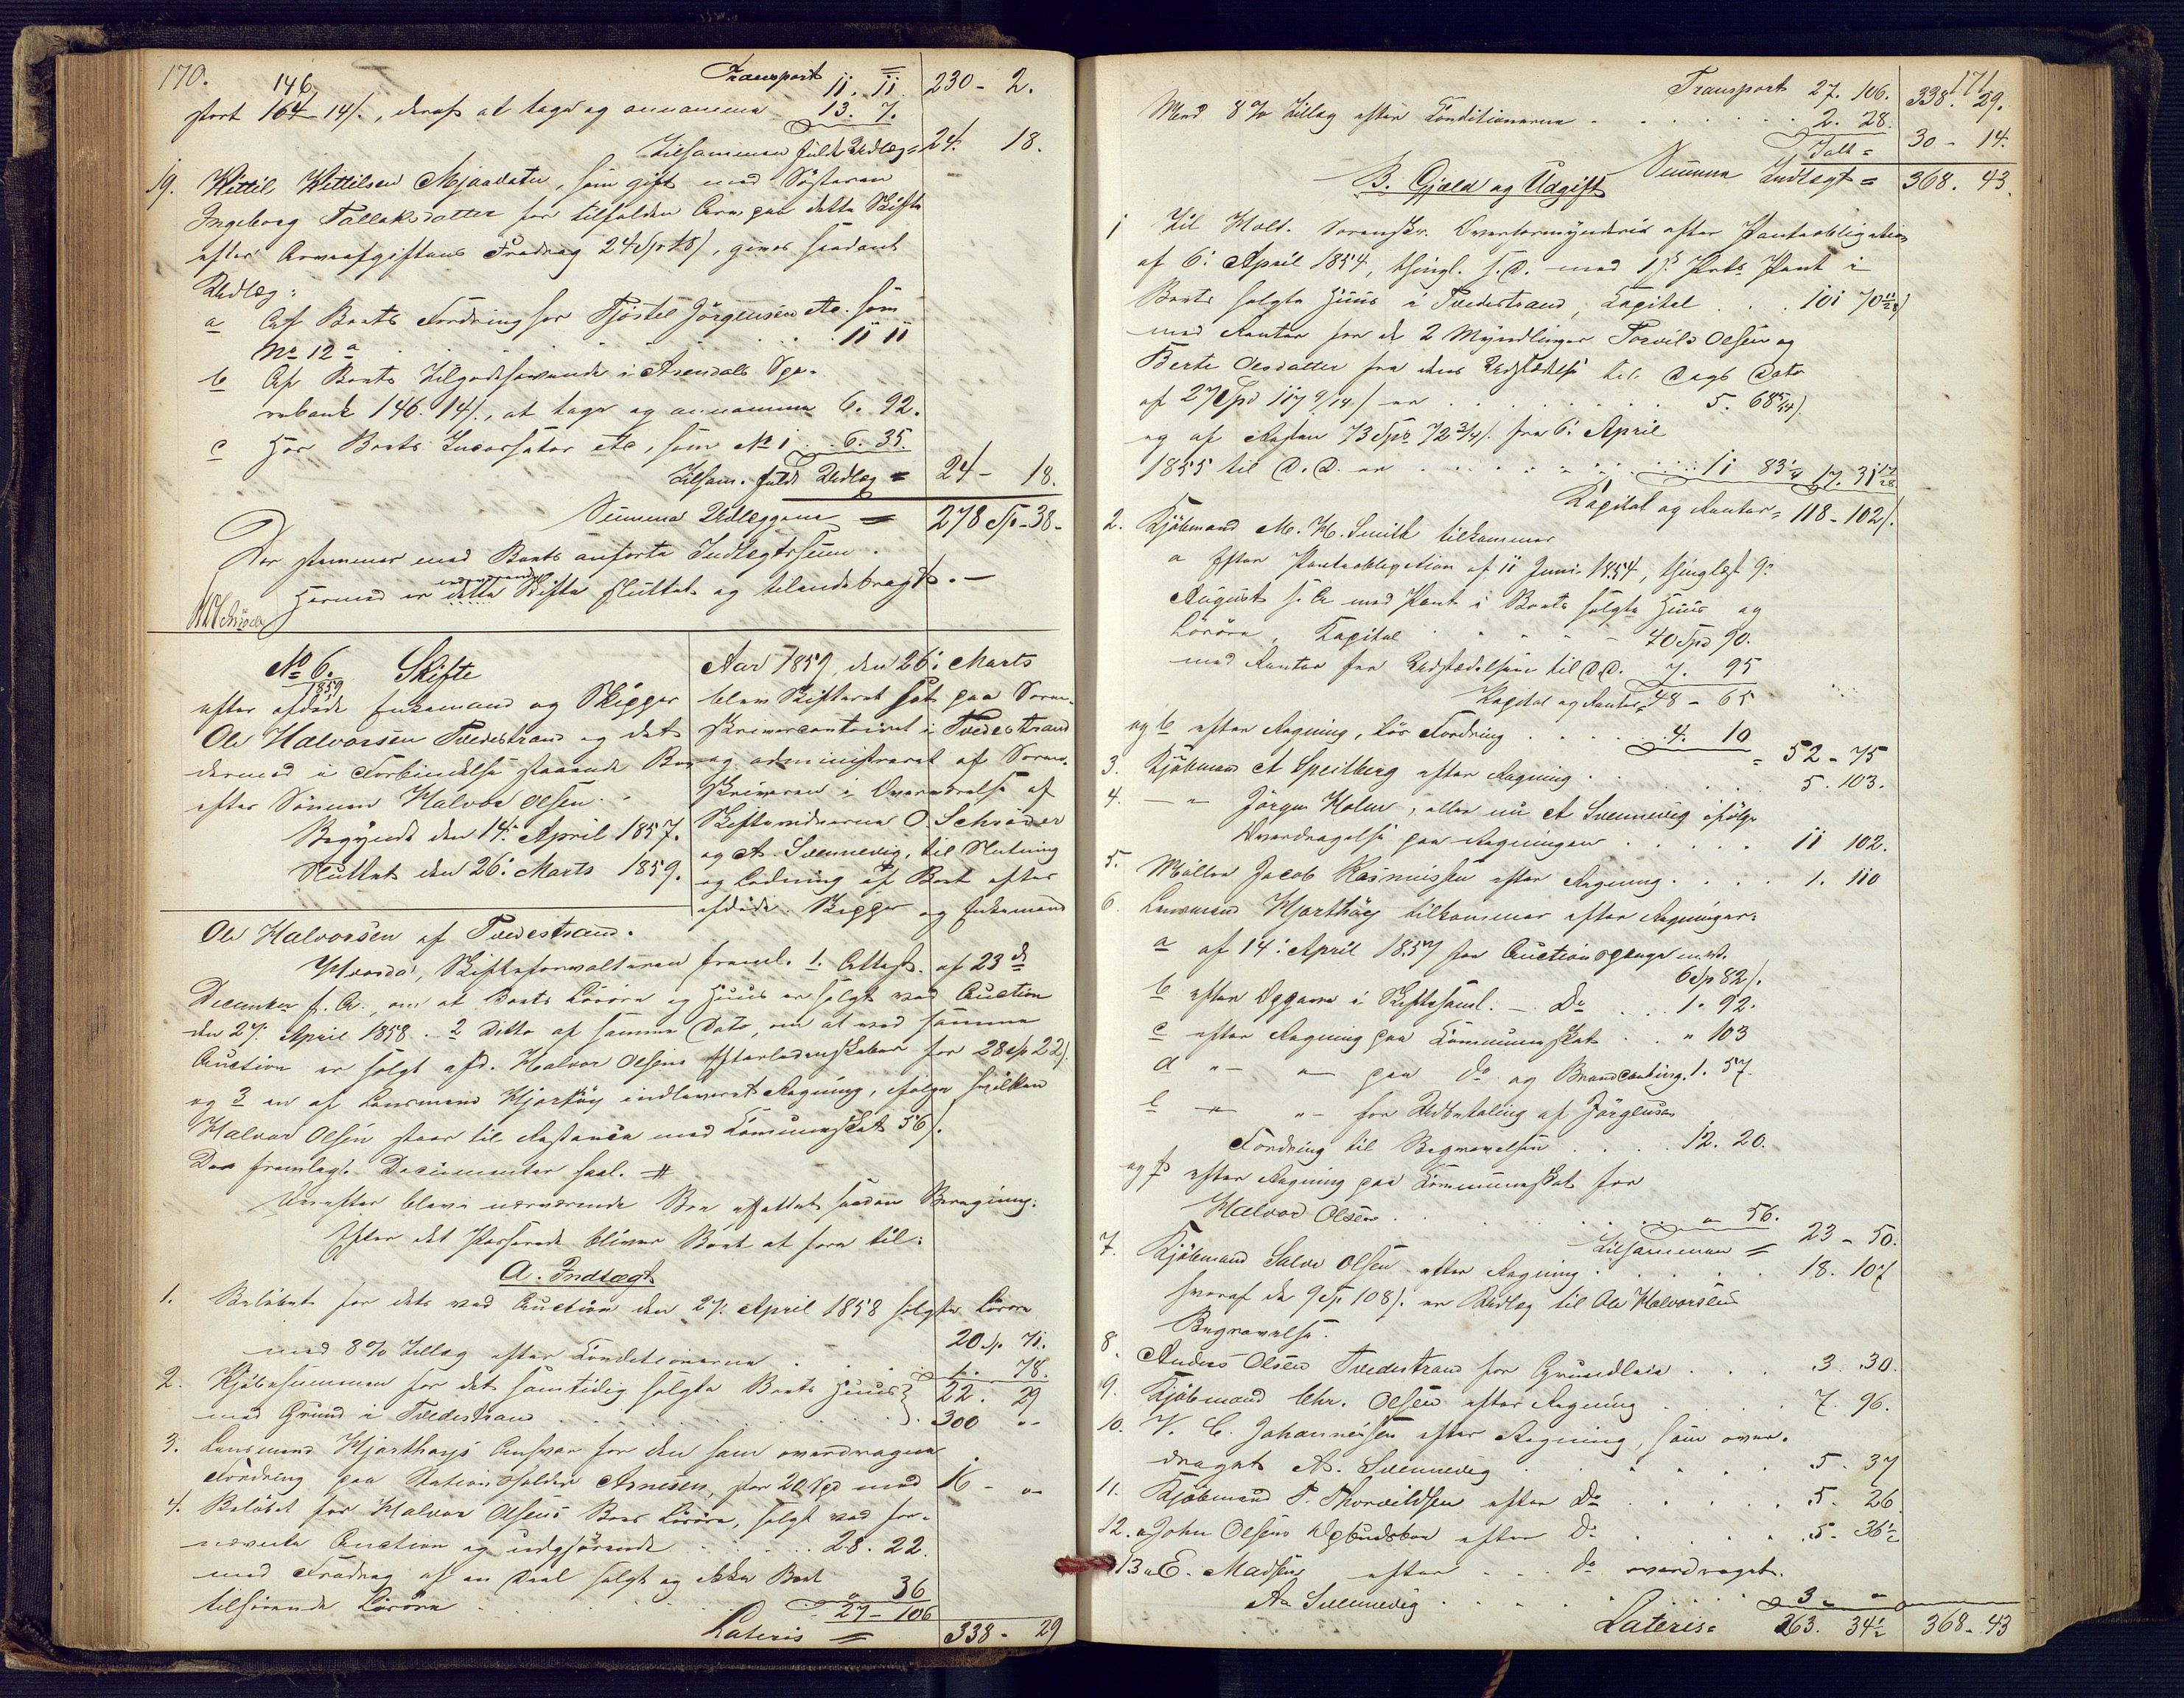 170.
146
Transport 11. 11. 230 - 2.
stort 164 - 14 /, deraf at tage og annamme 13. 7.
Tilsammen fuldt Udlæg = 24. 18.
19. Kittil Kittilsen Mjaavatn, som gift med Søsteren
Ingeborg Tallaksdatter har tilfalden Arv paa dette Skifte
efter Arveafgiftens Fradrag 24 Spd 18 /, gives saadant
Udlæg:
a Af Boets Fordring hos Tjøstel Jørgensen etc. som
No 12 a . . . 11 11
b Af Boets Tilgodehavende i Arendals Spa-
rebank 146. 14 /., at tage og annamme 6. 92.
c Hos Boets Incassator etc, som No 1 . . 6. 35.
Tilsam. fuldt Udlæg = 24 - 18.
Summa Udlæggene = 278 Sp - 38 -
Der stemmer med Boets anførte Indtægtssum.
Hermed er dette Skifte sluttet og tilendebragt. —
No 6. 1859 Skifte
efter afdøde Enkemand og Skipper
Ole Halvorsen Tvedestrand og det
dermed i Forbindelse staaende Bo
efter Sønnen Halvor Olsen.
Begyndt den 14. April 1857.
Sluttet den 26. Marts 1859.
Aar 1859, den 26. Marts
blev Skifteret sat paa Soren-
skrivercontoiret i Tvedestrand
og administreret af Soren-
skriveren i Overværelse af
Skiftevidnerne O. Schrøder
og A. Svennevig, til Slutning
og Lodning af Boet efter
afdøde Skipper og Enkemand
Ole Halvorsen af Tvedestrand.
Skifteforvalteren freml. 1. Attest af 23 de
December f. A., om at Boets Løsøre og Huus er solgt ved Auction
den 27. April 1858. 2 Ditto af samme Dato, om at ved samme
Auction er solgt afd. Halvor Olsens Efterladenskaber for 28 Sp 22 /.
og 3 en af Lensmand Hjorthøy indleveret Regning, ifølge hvilken
Halvor Olsen staar til Restance med Kommuneskat 56 /.
De fremlagte Documenter saal. #
Derefter blev i nærværende Bo affattet saadan Beregning:
Efter det Passerede bliver Boet at føre til:
A. Indtægt
1. Beløbet for dets ved Auction den 27. April 1858 solgte Løsøre
20 Sp. 71.
med 8 % Tillæg efter Conditionerne . . . 1. 78.
22. 29
2. Kjøbesummen for det samtidig solgte Boets Huus
med Grund i Tvedestrand . . . 300 "
3. Lensmand Hjorthøys Ansvar for den ham overdragne
Fordring paa Stationsholder Arnesen, stor 20 Spd med 16 - "
4. Beløbet for Halvor Olsens Boes Løsøre, solgt ved for-
nævnte Auction og udgjørende . . . 28. 22.
med Fradrag af en Deel solgt og ikke Boet
tilhørende Løsøre . . . " 36
27 - 106
Lateris = 338 - 29
171
Transport 27. 106. 338. 29.
Med 8 % Tillæg efter Conditionerne . . . 2. 28.
Talt = 30 - 14.
Summa Indtægt = 368. 43.
B. Gjæld og Udgift
1 Til Holt. Sorenskr. Overformynderie efter Panteobligation
af 6. April 1854, thingl. s. D. med 1ste Prts Pant i
Boets solgte Huus i Tvedestrand, Kapital . . 101 70 11/28 /
med Renter for de 2 Myndlinger Torvild Olsen og
Berte Olesdatter fra dens Udstædelse til Dags Dato
af 27 Spd 117 9/14 / er . . . 5. 68 5/14 /
og af Resten 73 Spd 72 3/4 /. fra 6. April
1855 til D. D. er . . . 11 83 1/4 17. 31 17/28
Kapital og Renter = 118 - 102 /.
2. Kjøbmand M. H. Smith tilkommer
a Efter Panteobligation af 11 Juni 1854, thinglæst 9.
August s. A. med Pant i Boets solgte Huus og
Løsøre, Kapital . . . 40 Spd 90.
med Renter fra Udstædelsen til D. D. 7. 95
Kapital og Renter = 48 - 65
og b efter Regning, løs Fordring . . . 4. 10 = 52 - 75
3. Kjøbmand A Speilberg efter Regning . . . 5. 103.
4. — " Jørgen Holm, eller nu A Svennevig ifølge
Overdragelse paa Regningen . . . 11 102.
5. Møller Jacob Rasmussen efter Regning . . . 1. 110
6. Lensmand Hjorthøy tilkommer efter Regninger:
a af 14. April 1857 for Auctionspenge m. v.
6 Sp 82 /.
b efter Opgave i Skiftesaml. — Do . . . 1. 92.
c efter Regning paa Kommuneskat . . " 103
d " — " — paa Do og Brandconting. 1. 57.
e — " — for Udbetaling af Jørgensens
Fordring til Begravelsen . . . 12. 20.
og f efter Regning paa Kommuneskat for
Halvor Olsen . . . " 56.
Tilsammen = 23 - 50.
7. Kjøbmand Salve Olsen efter Regning . . . 18. 107
hvoraf de 9 Sp. 108 /. er Udlæg til Ole Halvorsens
Begravelse.
8. Anders Olsen Tvedestrand for Grundleie . . . 3. 30.
9. Kjøbmand Chr. Olsen efter Regning . . . 7. 96.
10. N. C. Johannesen efter Regning, som over-
draget A. Svennevig . . . 5. 37
11. Kjøbmand T. Thorvildsen efter Do . . . 5. 26
12. John Olsens Opbudsbo efter Do . . . 5. 36 1/2
13 E. Madsen efter . . . do overdraget
A. Svennevig . . . 3 - "
Lateris = 263. 34 1/2 368 - 43